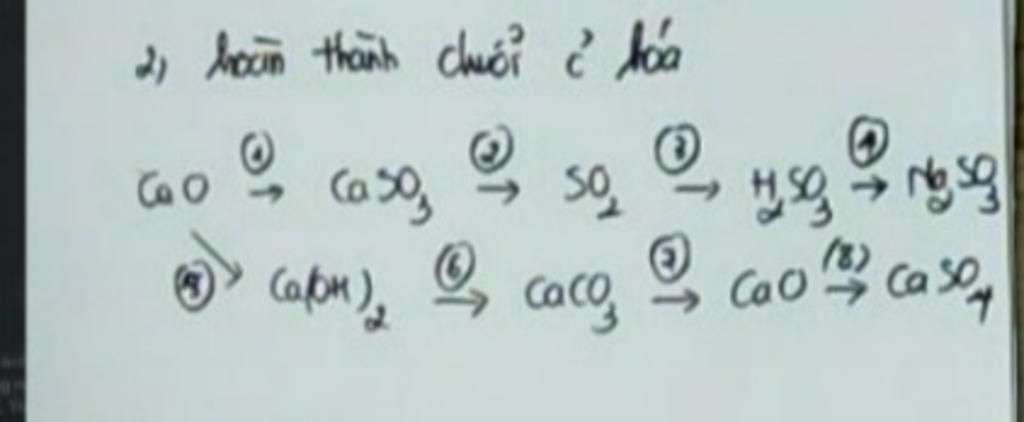 2, hoàn thành chuỗi ở hóa
CaO ①→ CaSO₃ ②→ SO₂ ③→ H₂SO₃ ④→ Na₂SO₃
⑤↘ Ca(OH)₂ ⑥→ CaCO₃ ⑦→ CaO (8)→ CaSO₄